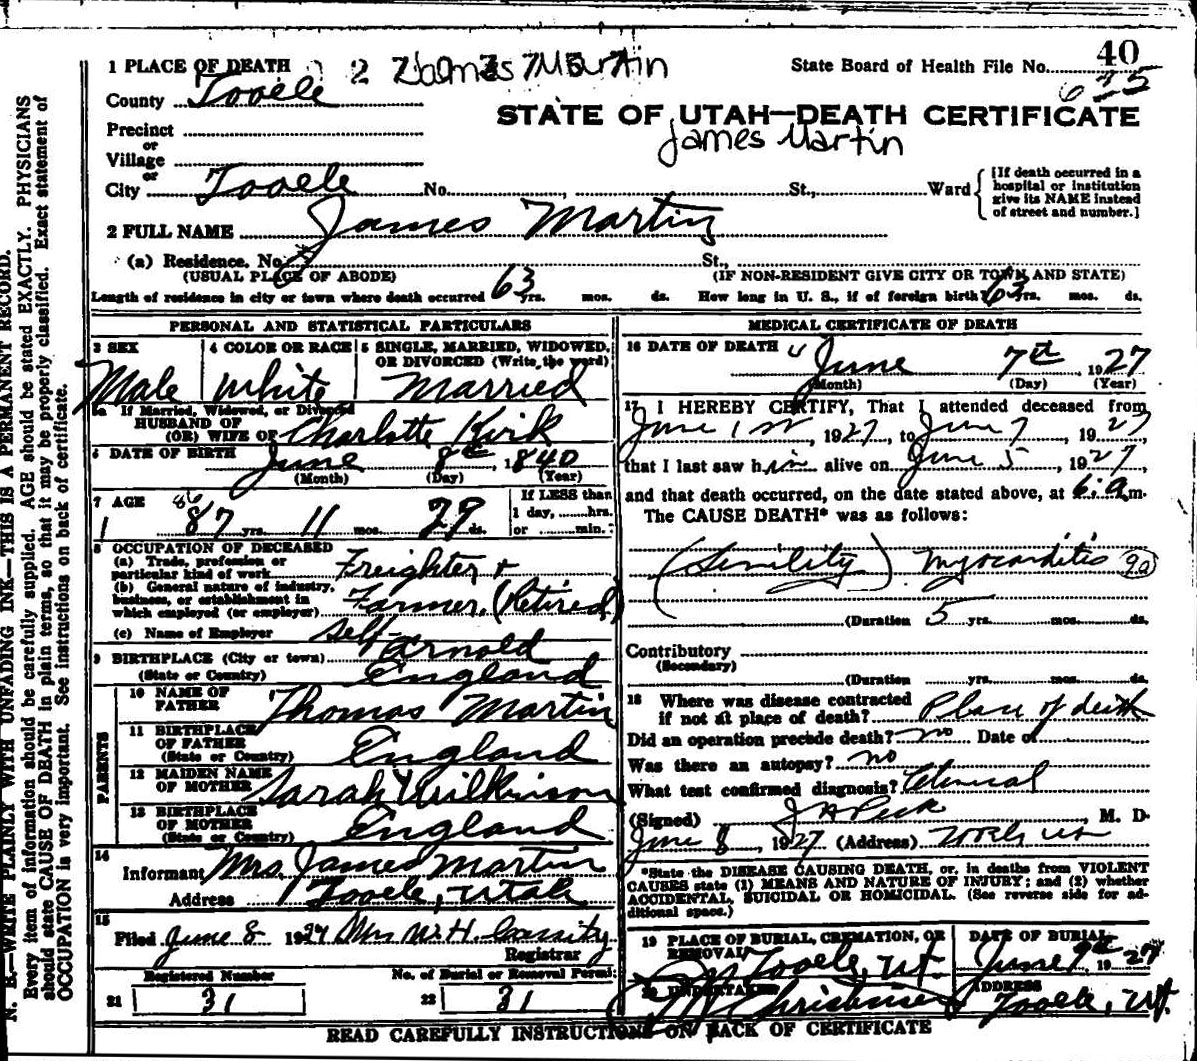 40
1 PLACE OF DEATH 2 James Martin State Board of Health File No. 635
County Tooele
STATE OF UTAH—DEATH CERTIFICATE
Precinct
James Martin
or
Village
or
City Tooele No. , St., Ward
[If death occurred in a hospital or institution give its NAME instead of street and number.]
2 FULL NAME James Martin
(a) Residence. No. St.,
(USUAL PLACE OF ABODE) (IF NON-RESIDENT GIVE CITY OR TOWN AND STATE)
Length of residence in city or town where death occurred 63 yrs. mos. ds. How long in U. S., if of foreign birth? 63 yrs. mos. ds.
PERSONAL AND STATISTICAL PARTICULARS
3 SEX Male
4 COLOR OR RACE White
5 SINGLE, MARRIED, WIDOWED, OR DIVORCED (Write the word) Married
5a If Married, Widowed, or Divorced
HUSBAND OF
(OR) WIFE OF Charlotte Kirk
6 DATE OF BIRTH June 8th, 1840
(Month) (Day) (Year)
7 AGE 86
87 yrs. 11 mos. 29 ds.
If LESS than
1 day, hrs.
or min.
8 OCCUPATION OF DECEASED
(a) Trade, profession or
particular kind of work Freighter +
(b) General nature of industry,
business, or establishment in
which employed (or employer) Farmer. (Retired)
(c) Name of Employer Self
9 BIRTHPLACE (City or town) Arnold
(State or Country) England
PARENTS
10 NAME OF FATHER Thomas Martin
11 BIRTHPLACE OF FATHER
(State or Country) England
12 MAIDEN NAME OF MOTHER Sarah Wilkinson
13 BIRTHPLACE OF MOTHER
(State or Country) England
14
Informant Mrs. James Martin
Address Tooele, Utah
15
Filed June 8 1927 Mrs W. H. Cassity
Registrar
Registered Number No. of Burial or Removal Permit
21 31 22 31
MEDICAL CERTIFICATE OF DEATH
16 DATE OF DEATH June 7th, 1927
(Month) (Day) (Year)
17 I HEREBY CERTIFY, That I attended deceased from
June 1st, 1927, to June 7, 1927
that I last saw him alive on June 5, 1927,
and that death occurred, on the date stated above, at 6. a m.
The CAUSE DEATH* was as follows:
(Senility) Myocarditis 90
(Duration 5 yrs. mos. ds.
Contributory
(Secondary)
(Duration yrs. mos. ds.
18 Where was disease contracted
if not at place of death? Place of death
Did an operation precede death? no Date of
Was there an autopsy? no
What test confirmed diagnosis? Clinical
(Signed) J A Peck, M. D.
June 8, 1927 (Address) Tooele Ut
*State the DISEASE CAUSING DEATH, or, in deaths from VIOLENT
CAUSES state (1) MEANS AND NATURE OF INJURY; and (2) whether
ACCIDENTAL, SUICIDAL OR HOMICIDAL. (See reverse side for ad-
ditional space.)
19 PLACE OF BURIAL, CREMATION, OR REMOVAL Tooele, Ut.
DATE OF BURIAL June 9th 1927
20 UNDERTAKER Christensen
ADDRESS Tooele, Ut.
READ CAREFULLY INSTRUCTIONS ON BACK OF CERTIFICATE
N. B.—WRITE PLAINLY WITH UNFADING INK—THIS IS A PERMANENT RECORD.
Every item of information should be carefully supplied. AGE should be stated EXACTLY. PHYSICIANS
should state CAUSE OF DEATH in plain terms, so that it may be properly classified. Exact statement of
OCCUPATION is very important. See instructions on back of certificate.